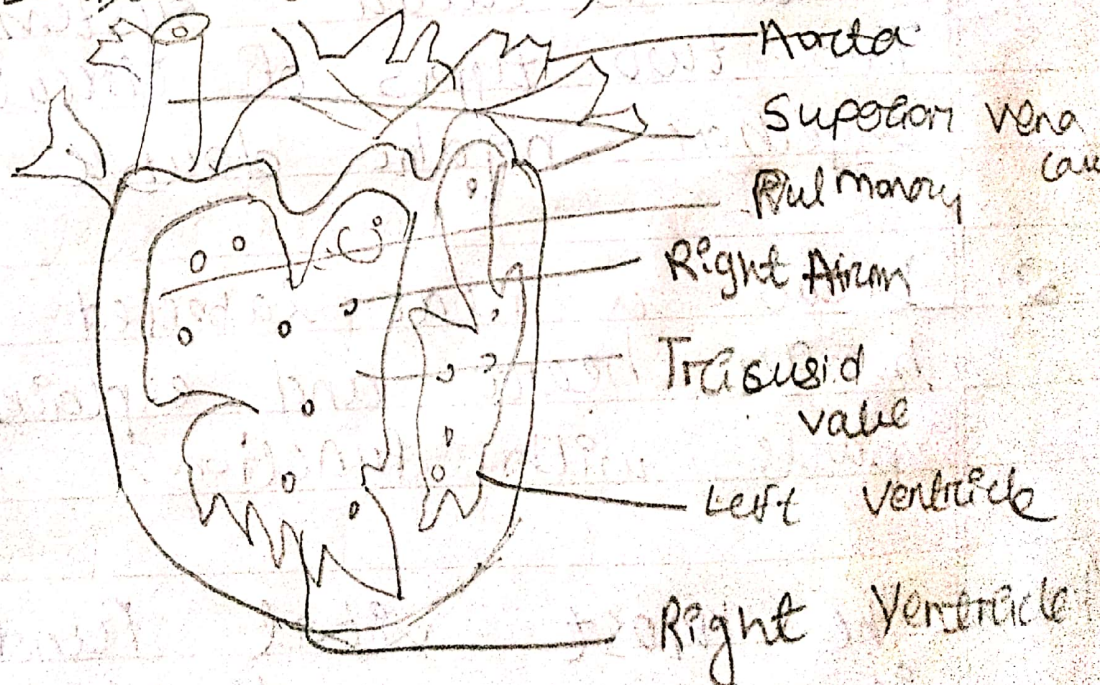 Aorta
Superior vena
cau
Pulmonory
Right Atrium
Tricusid
value
Left ventricle
Right Ventricle